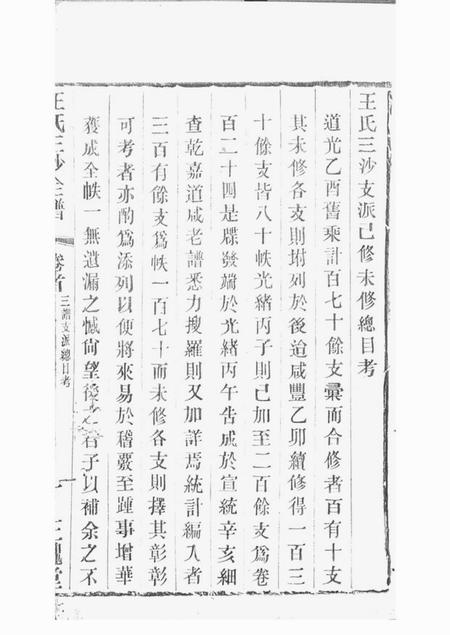 王氏三沙支派已修未修總目考
道光乙酉舊乘計百七十餘支彙而合修者百有十支
其未修各支則坿列於後迨咸豐乙卯續修得一百三
十餘支皆八十帙光緒丙子則已加至二百餘支爲卷
百二十四是牒發端於光緒丙午告成於宣統辛亥細
查乾嘉道咸老譜悉力搜羅則又加詳焉統計編入者
三百有餘支爲帙一百七十而未修各支則擇其彰彰
可考者亦酌爲添列以便將來易於稽覈至踵事增華
蒐成全帙一無遺漏之憾尙望後之君子以補余之不
王氏三沙全譜
卷首
三譜支派總目考
一
三槐堂